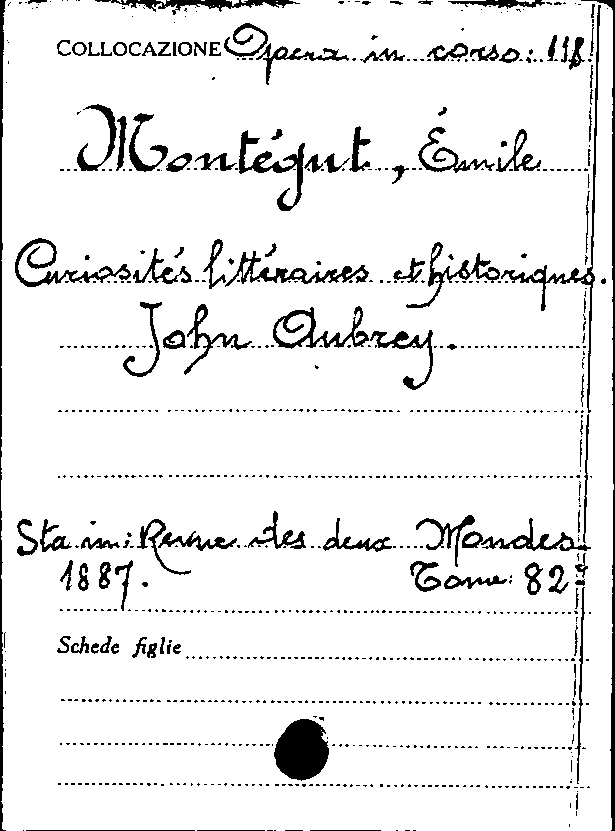 COLLOCAZIONE Opera in corso: 118
Montégut, Émile
Curiosités littéraires et historiques.
John Aubrey.
Sta in: Revue des deux Mondes
1887. Tome: 82º
Schede figlie